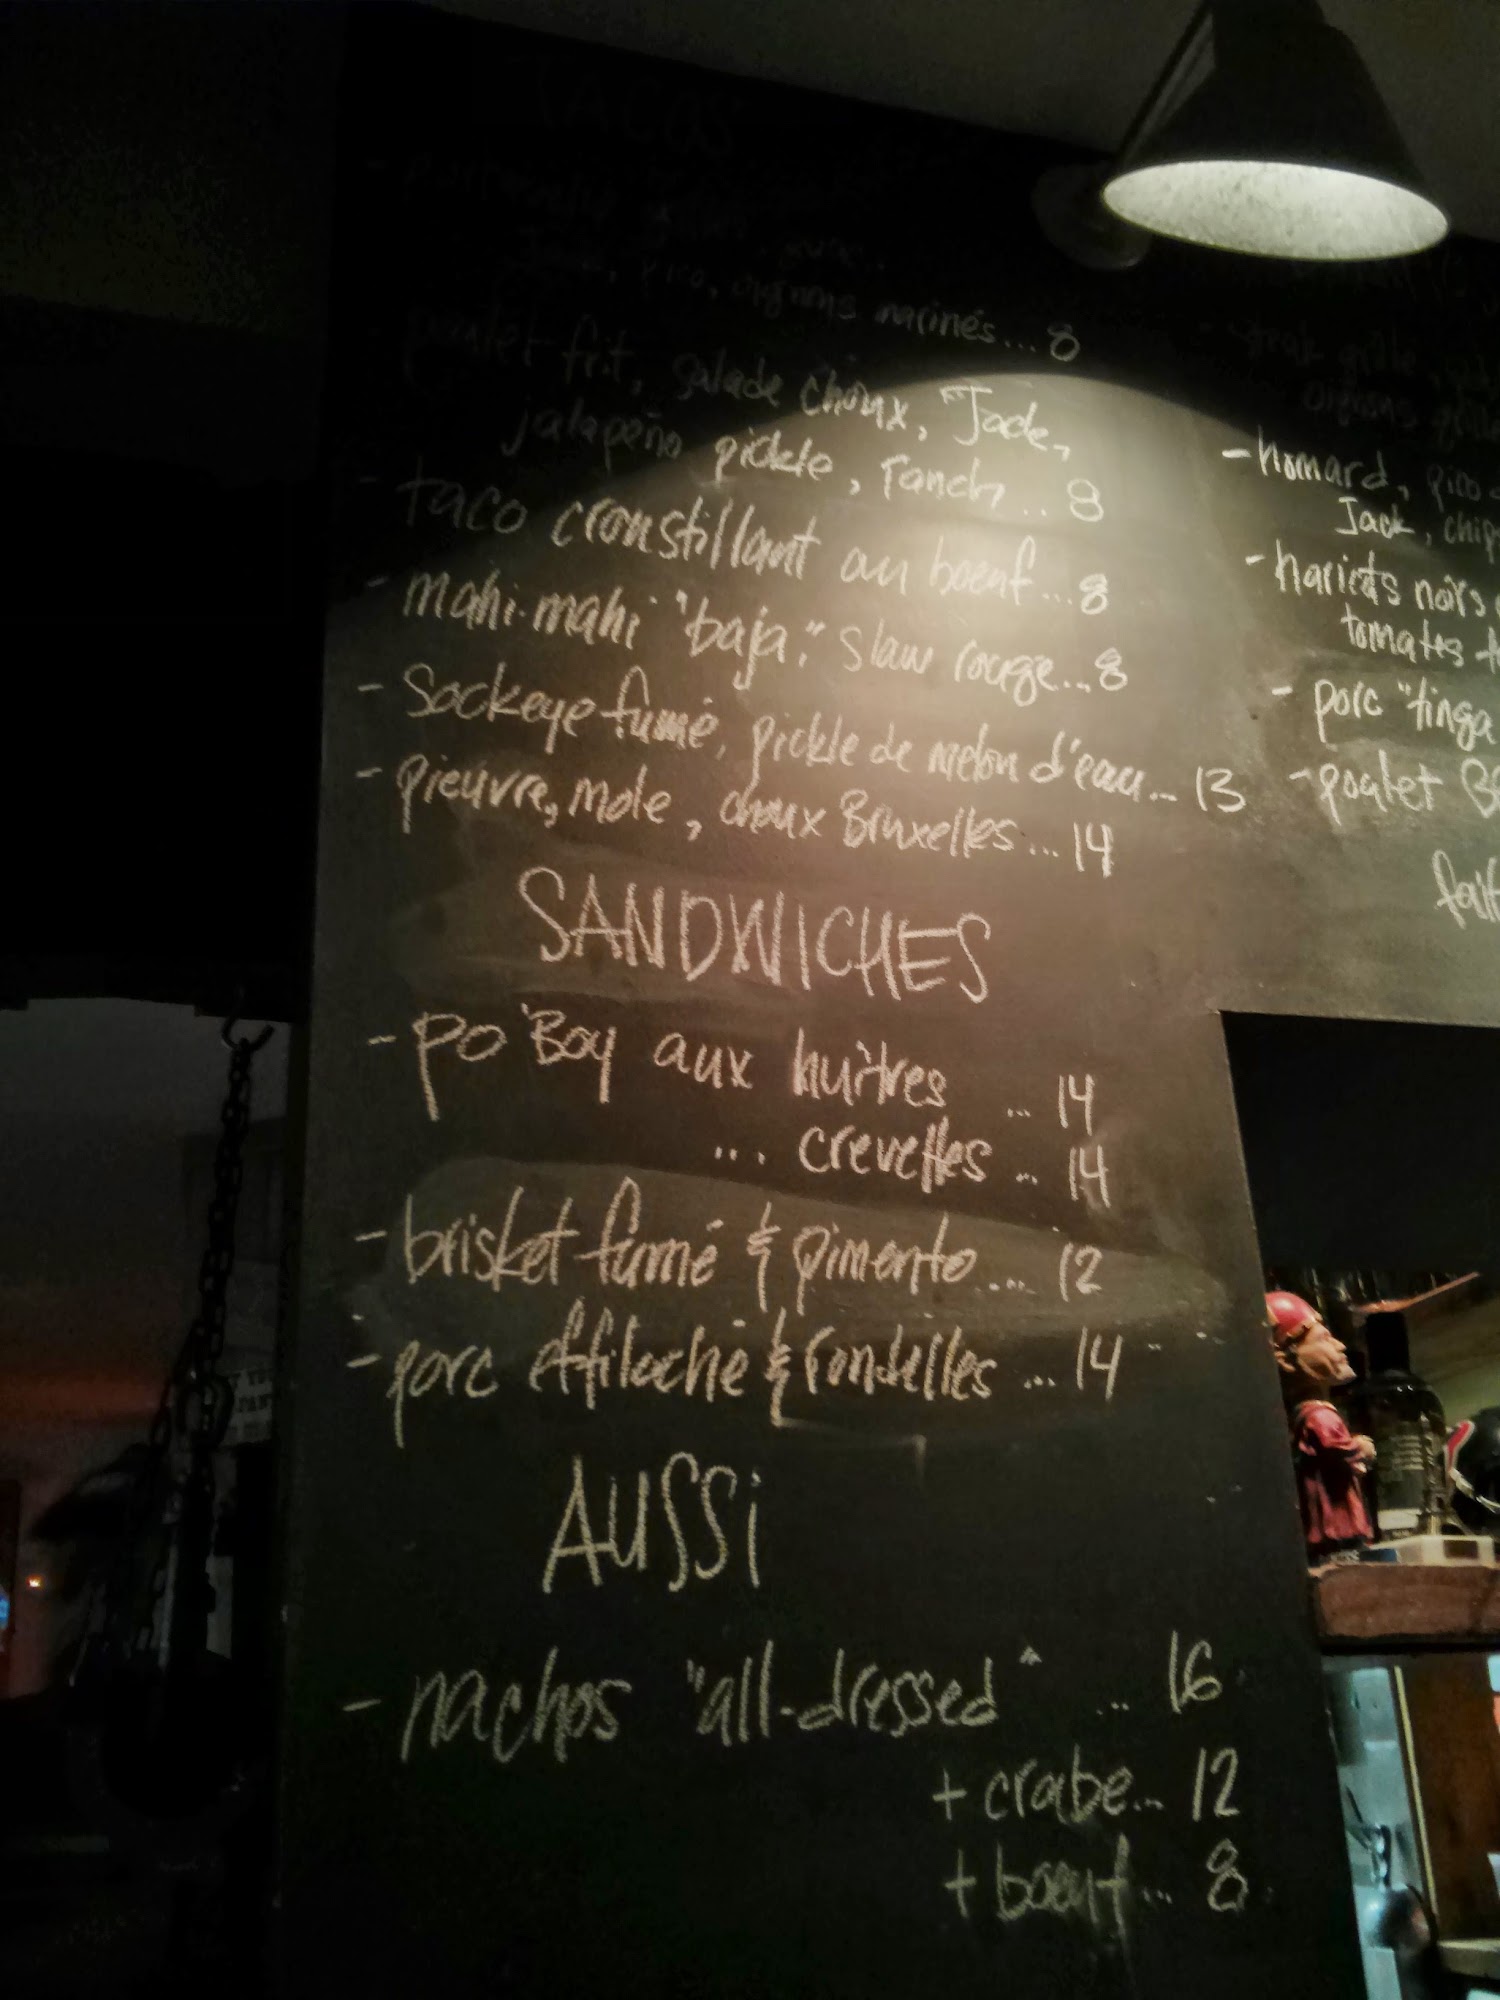 TACOS
pico, oignons marinés...8
poulet frit, salade choux, Jack,
jalapeño pickle, ranch...8
- taco croustillant au boeuf...8
- mahi-mahi "baja", slaw rouge...8
- Sockeye fumé, pickle de melon d'eau...13
- pieuvre, mole, choux Bruxelles...14
SANDWICHES
- po'Boy aux huîtres ...14
... crevettes...14
- brisket fumé & pimento....12
- porc effiloché & rondelles ...14
AUSSI
- nachos "all-dressed" ...16
+ crabe...12
+ boeuf...8
- homard, pico
Jack,
- haricots noirs
tomates
- porc "tinga
- poulet